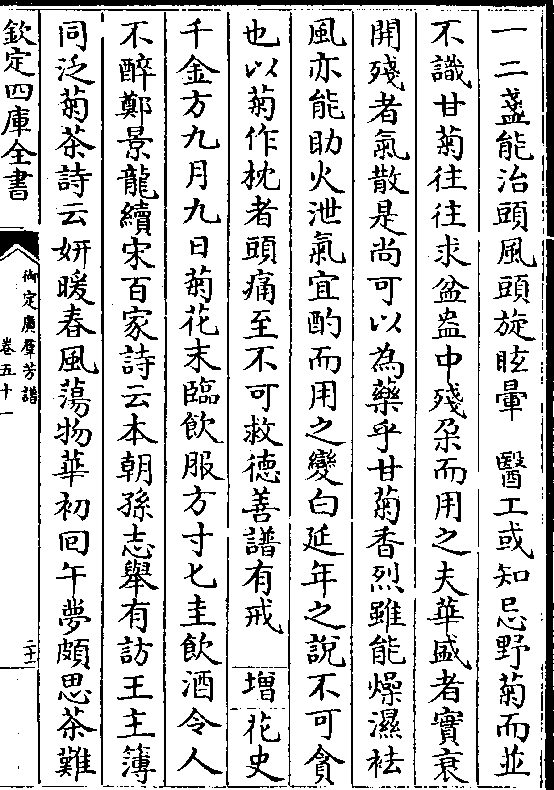 一二盞能治頭風頭旋眩暈　醫工或知忌野菊而並
不識甘菊往往求盆盎中殘朶而用之夫華盛者實衰
開殘者氣散是尚可以為藥乎甘菊香烈雖能燥濕袪
風亦能助火泄氣宜酌而用之變白延年之說不可貪
也以菊作枕者頭痛至不可救德善譜有戒　增花史
千金方九月九日菊花末臨飲服方寸匕圭飲酒令人
不醉鄭景龍續宋百家詩云本朝孫志舉有訪王主簿
同泛菊茶詩云妍暖春風蕩物華初囘午夢頗思茶難
欽定四庫全書
御定廣羣芳譜
卷五十一
二十二